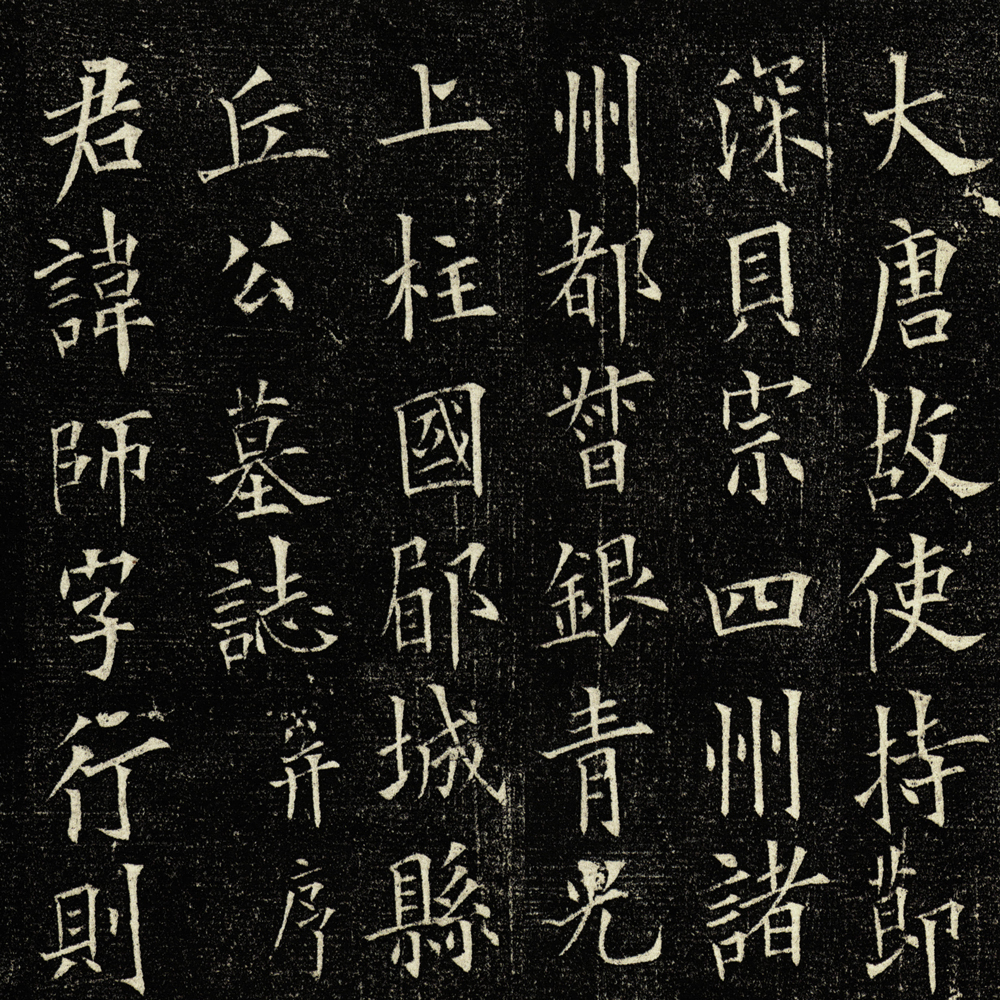 大唐故使持節
深貝宗四州諸
州都督銀青光
上柱國郿城縣
丘公墓誌并序
君諱師字行則